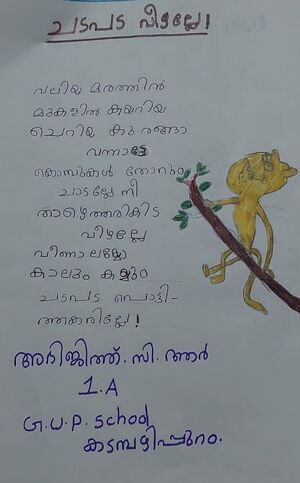 ചടപട വീഴല്ലേ!
വലിയ മരത്തിൻ
മുകളിൽ കയറിയ
ചെറിയ കുരങ്ങാ
വന്നാട്ടെ
കൊമ്പുകൾ തോറും
ചാടല്ലേ നീ
താഴെത്തരികിട
വീഴല്ലേ
വീണാലയ്യോ
കാലും കയ്യും
ചടപട പൊട്ടി-
ത്തകരില്ലേ!
അഭിജിത്ത്. സി. ആർ
1. A
G.U.P. School
കടമ്പഴിപ്പുറം.